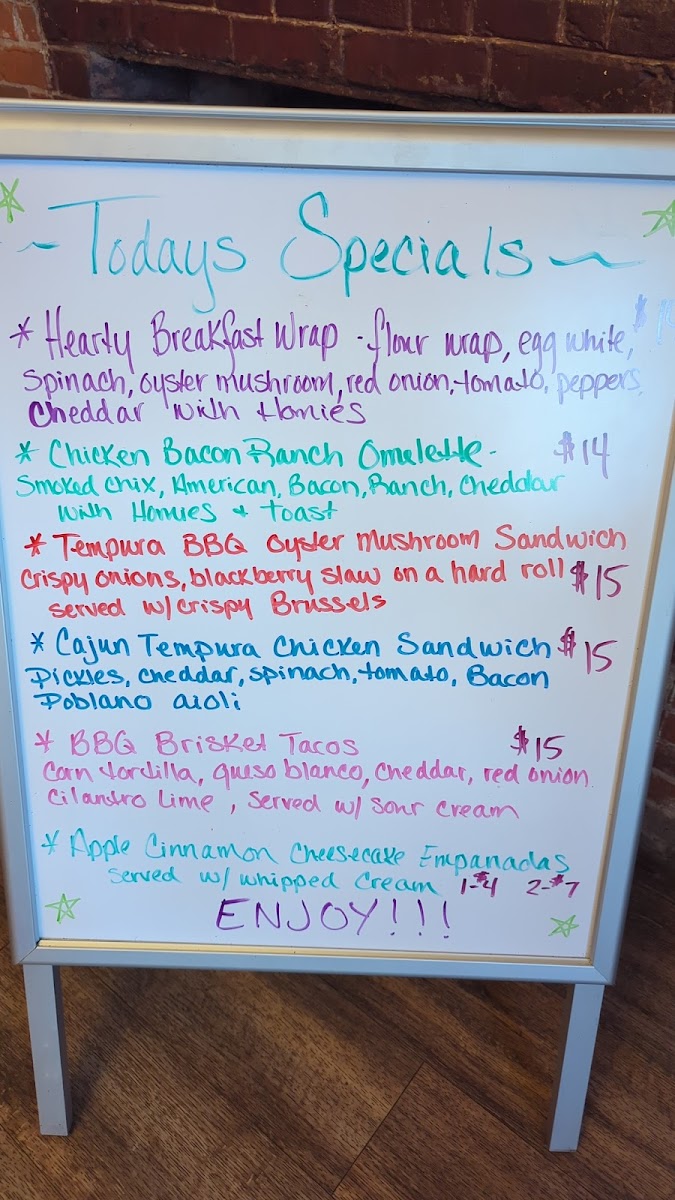 ~Todays Specials~
* Hearty Breakfast Wrap - flour wrap, egg white, $
Spinach, oyster mushroom, red onion, tomato, peppers,
Cheddar with Homies
* Chicken Bacon Ranch Omelette - $14
Smoked chix, American, Bacon, Ranch, Cheddar
with Homies & toast
* Tempura BBQ Oyster Mushroom Sandwich
Crispy onions, blackberry slaw on a hard roll $15
served w/ crispy Brussels
* Cajun Tempura Chicken Sandwich $15
Pickles, cheddar, spinach, tomato, Bacon
Poblano aioli
* BBQ Brisket Tacos $15
Corn tortilla, queso blanco, cheddar, red onion
Cilantro Lime, Served w/ sour cream
* Apple Cinnamon Cheesecake Empanadas
Served w/ whipped Cream 1-$4 2-$7
ENJOY!!!